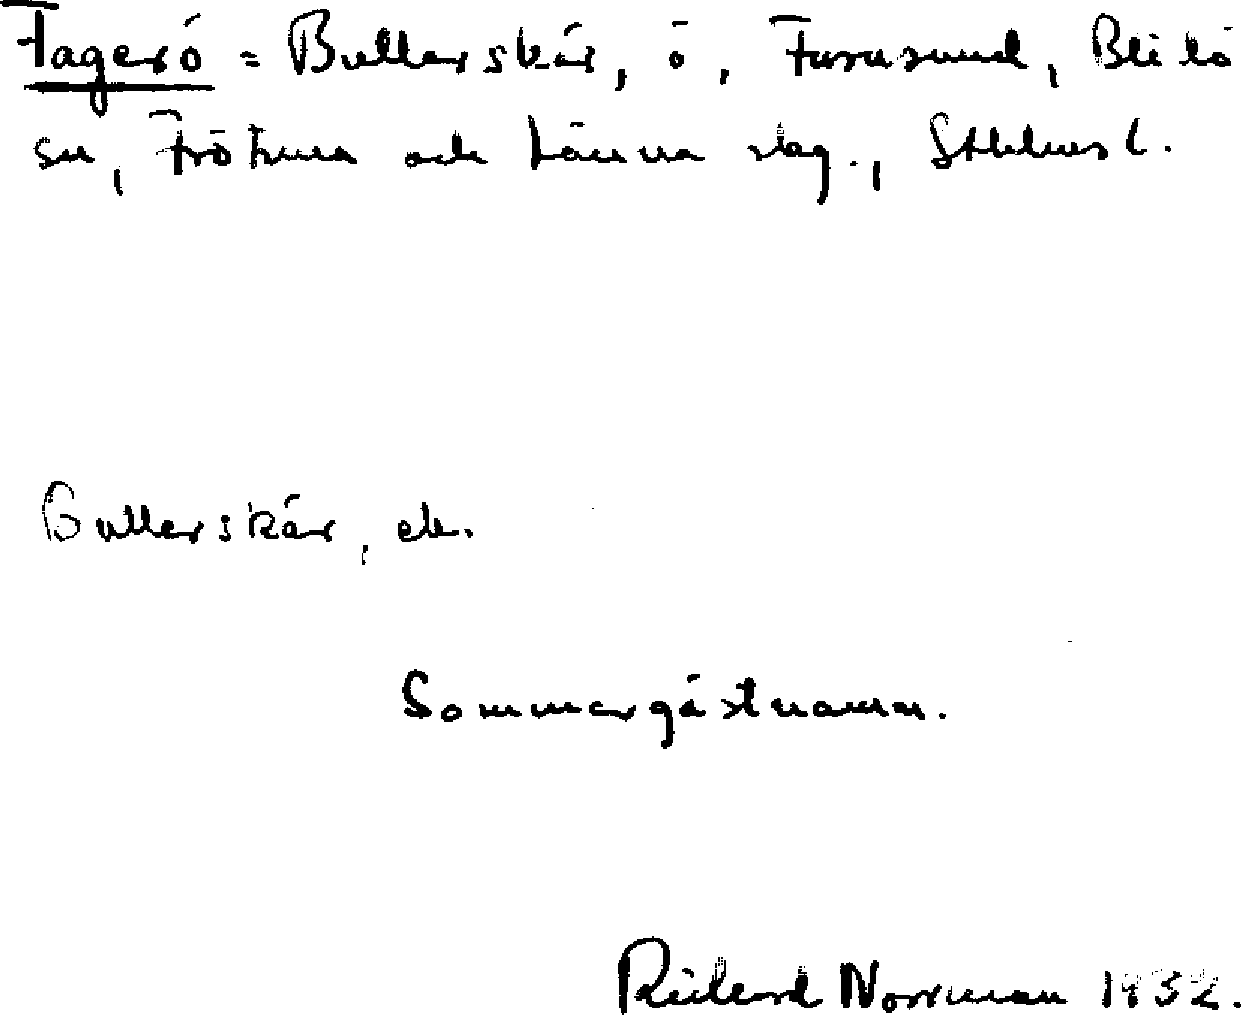 Fagerö = Bullerskär, ö, Furusund, Blidö
sn, Frötuna och Länna slag., Sthlms l.
Bullerskär, ek.
Sommargästnamn.
Rickard Norrman 1932.